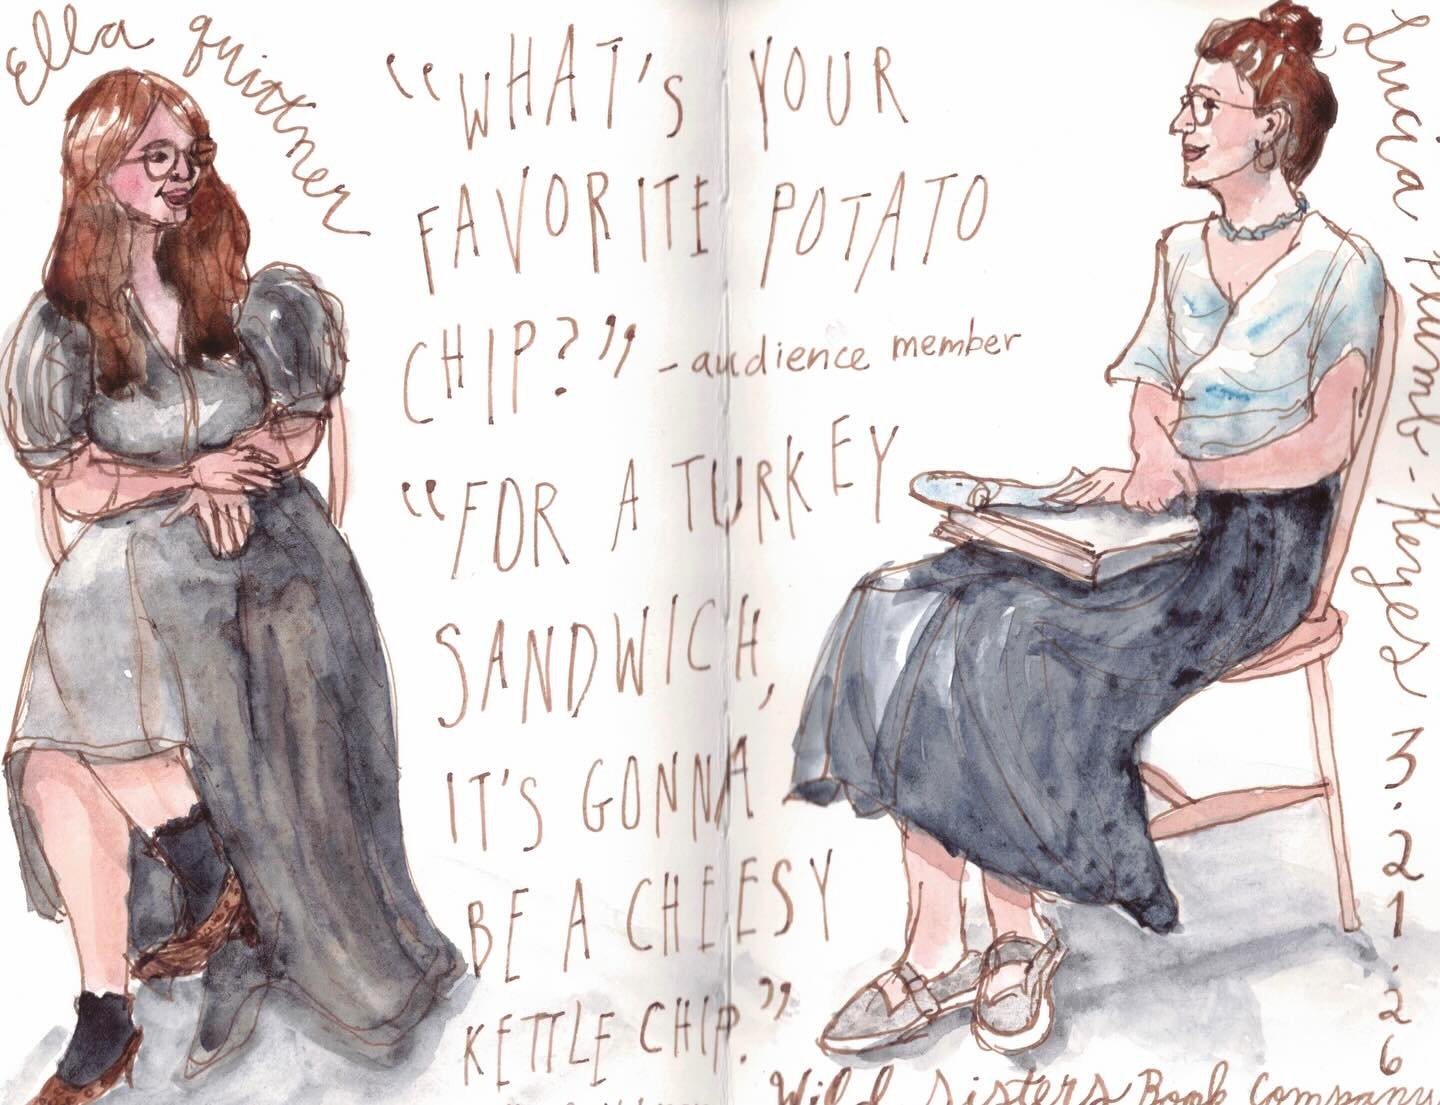 Ella Quittner
"WHAT'S YOUR
FAVORITE POTATO
CHIP?" - audience member
"FOR A TURKEY
SANDWICH,
IT'S GONNA
BE A CHEESY
KETTLE CHIP."
Lucia Plumb-Reyes 3.21.26
Wild Sisters Book Company